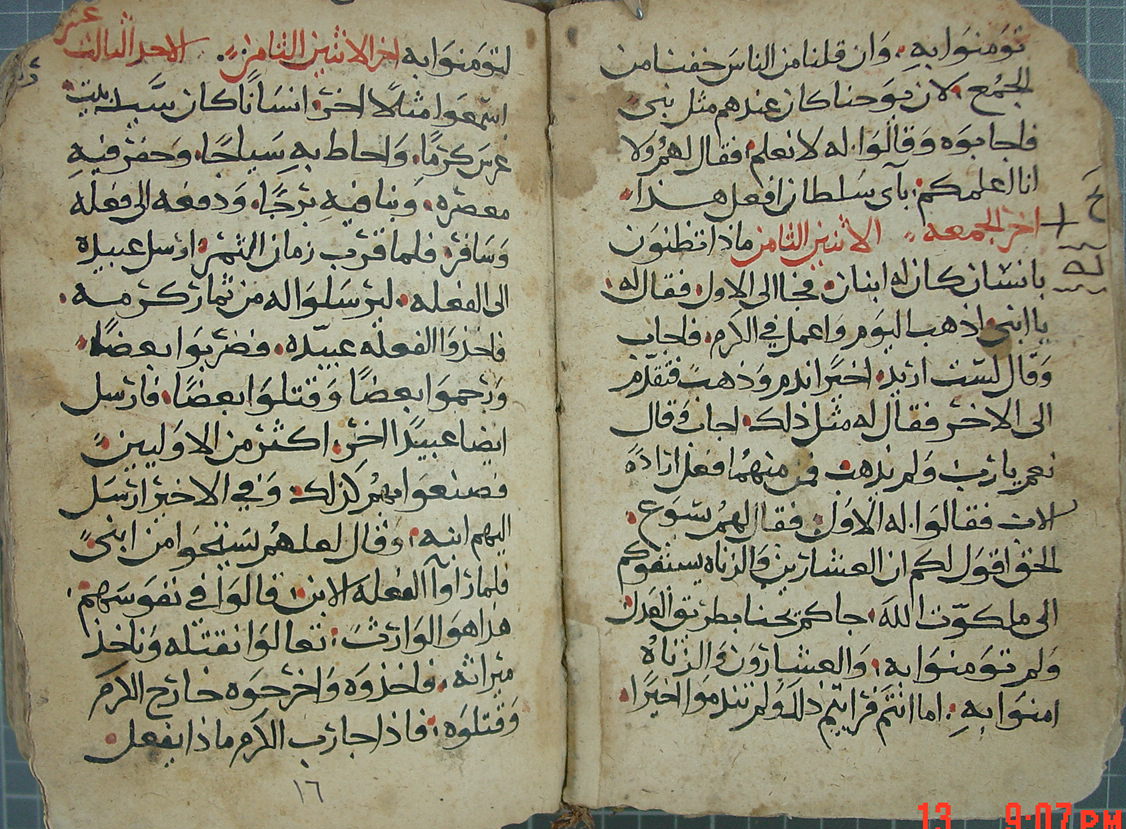 تومنوا به، وان قلنا من الناس خفنا من
الجمع، لان يوحنا كان عندهم مثل نبي
فاجابوه وقالوا له لا نعلم، فقال لهم ولا
انا اعلمكم باي سلطان افعل هذا،
اخر الجمعه الاثنين الثامن ماذا تظنون
بانسان كان له ابنان، فجا الى الاول فقال له،
يا ابني اذهب اليوم واعمل في الكرم، فاجاب
وقال لست اريد، اخيرا ندم وذهب فتقدم
الى الاخر فقال له مثل ذلك، اجاب وقال
نعم يارب ولم يذهب، فمن منهما فعل ارادة
الاب فقالوا له الاول، فقال لهم يسوع،
الحق اقول لكم ان العشارين والزناه يسبقوكم
الى ملكوت الله، جاكم يوحنا بطريق العدل
ولم تومنوا به، والعشارون والزناه
امنوا به، اما انتم فرايتم ذلك ولم تندموا اخيرا،
لتومنوا به اخر الاثنين الثامن، الاحد الثالث عشر
اسمعوا مثلا اخر، انسانا كان سيد بيت
غرس كرما، واحاط به سياجا، وحفر فيه
معصره، وبنا فيه برجا، ودفعه الى فعله
وسافر، فلما قرب زمان الثمر، ارسل عبيده
الى الفعله، ليرسلوا له من ثمار كرمه،
فاخذوا الفعله عبيده، فضربوا بعضا،
ورجموا بعضا وقتلوا بعضا، فارسل
ايضا عبيدا اخر، اكثر من الاولين
فصنعوا بهم كذلك، وفي الاخير ارسل
اليهم ابنه، وقال لعلهم يستحوا من ابني
فلما راوا الفعله الابن، قالوا في نفوسهم،
هذا هو الوارث، تعالوا نقتله وناخذ
ميراثه، فاخذوه واخرجوه خارج الكرم
وقتلوه، فاذا جا رب الكرم ماذا يفعل
١٦
13 9:07PM